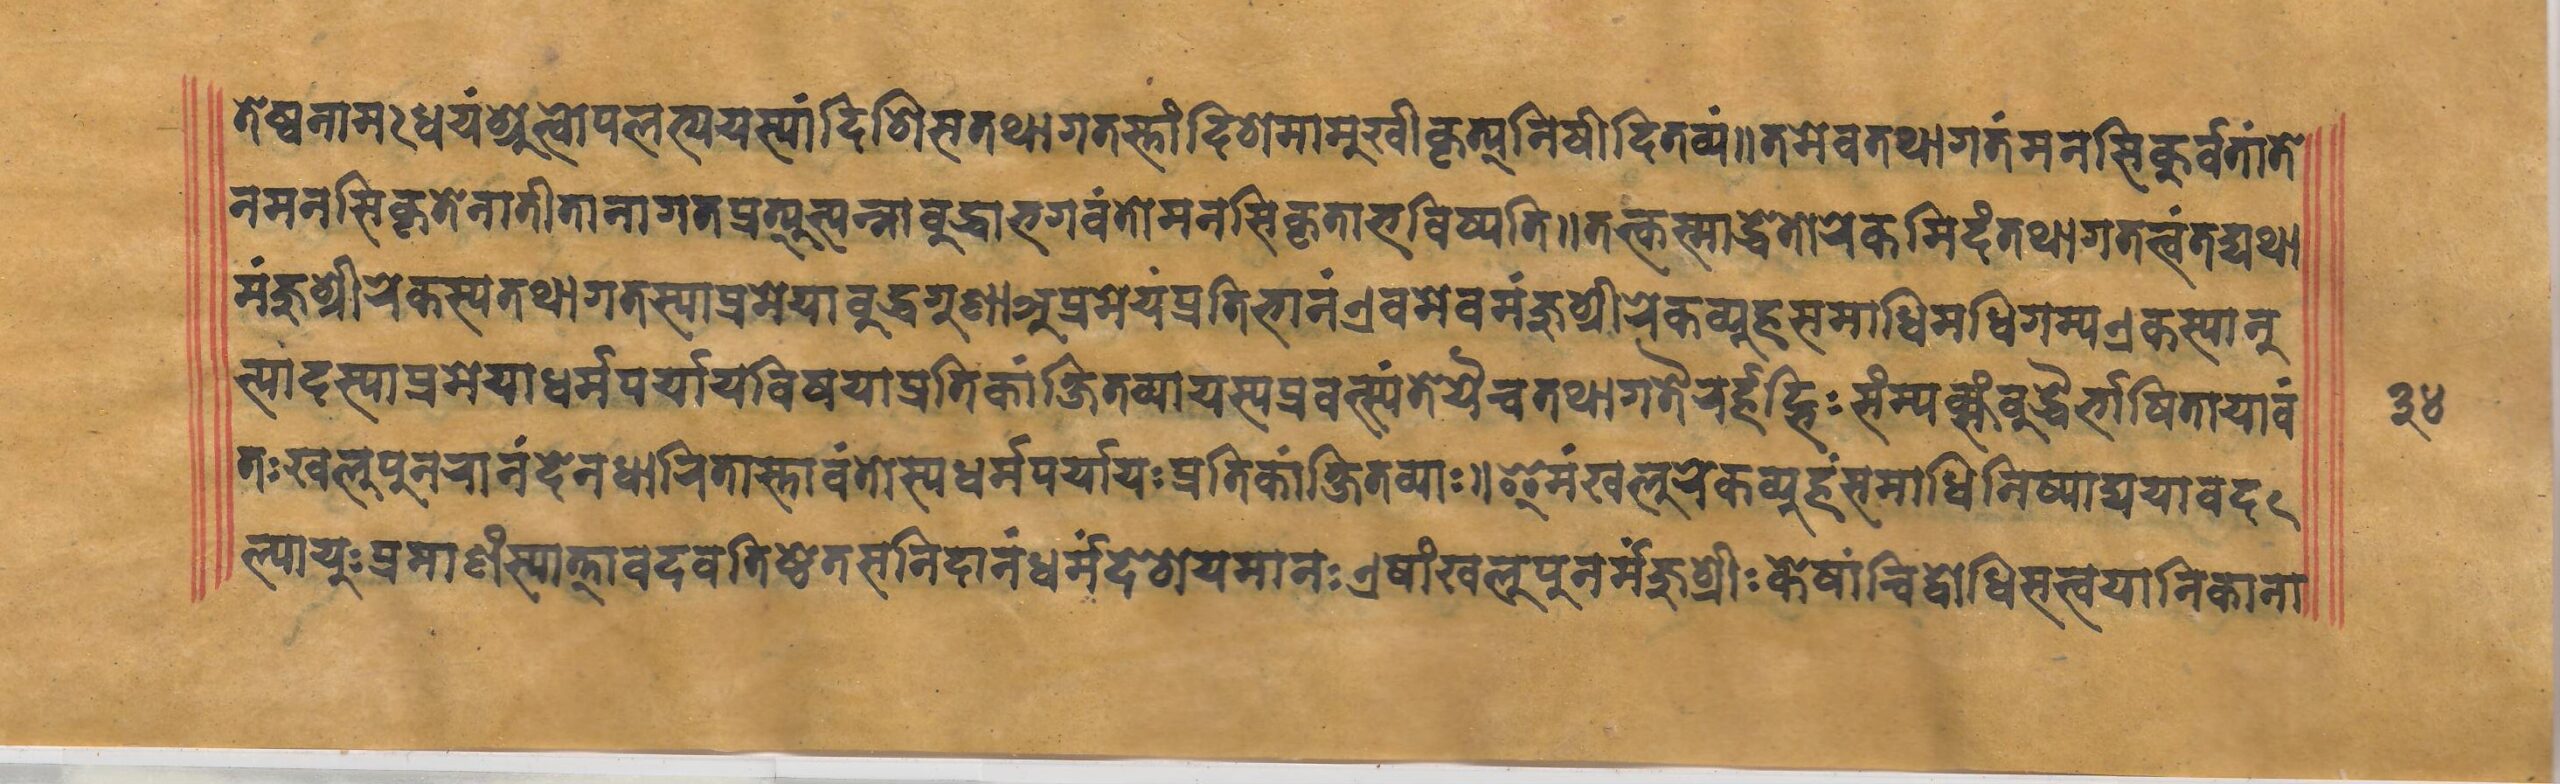 तेष्वनामꣳधेयंश्रुत्वोपलत्ययस्यांदिशिसतथागतस्तांदिशमामुखीकृत्य्निषीदितव्यं॥तमेवतथागतंमनसिकुर्वतांते
नमनसिकृतेनातीतानागतप्रत्युत्पन्नाबुद्धाभगवंतोमनसिकृताभविष्यति॥तत्कस्माद्धेतोरेकमिदंतथागतत्वंतद्यथा
मंजुश्रीरेकस्यतथागतस्याप्रमेयाबुद्धगुणाअप्रमेयंप्रतिभानंएवमेवमंजुश्रीरेकव्यूहसमाधिमधिगम्यएकस्यानु
त्पादस्याप्रमेयाधर्मपर्यायविषयाप्रतिकांक्षितव्यायस्यप्रवत्स्यंतेयैच्चतथागतैरर्हद्भिःसंम्यक्संबुद्धैर्भाषितायावं
तःखलुपुनरानंदेनधारितास्तावंतोस्यधर्मपर्यायःप्रतिकांक्षितव्याः॥इमंखलुरेकव्यूहंसमाधिनिष्पाद्ययावदꣳ
ल्पायुःप्रमाणंस्यात्तावदवतिष्ठेतसनिदानंधर्मंदेशयमानःएषांखलुपुनर्मंजुश्रीःकेषांच्चिद्बोधिसत्त्वयानिकाना
३४